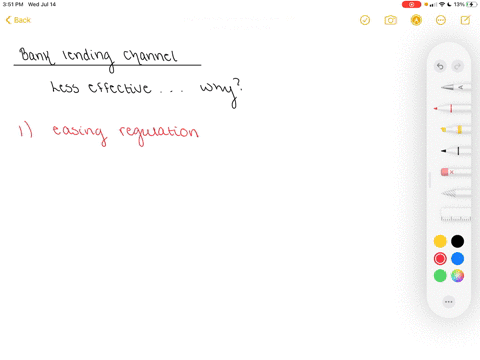 3:51 PM Wed Jul 14
13%
Back
Bank lending channel
Less effective ... why?
1) easing regulation